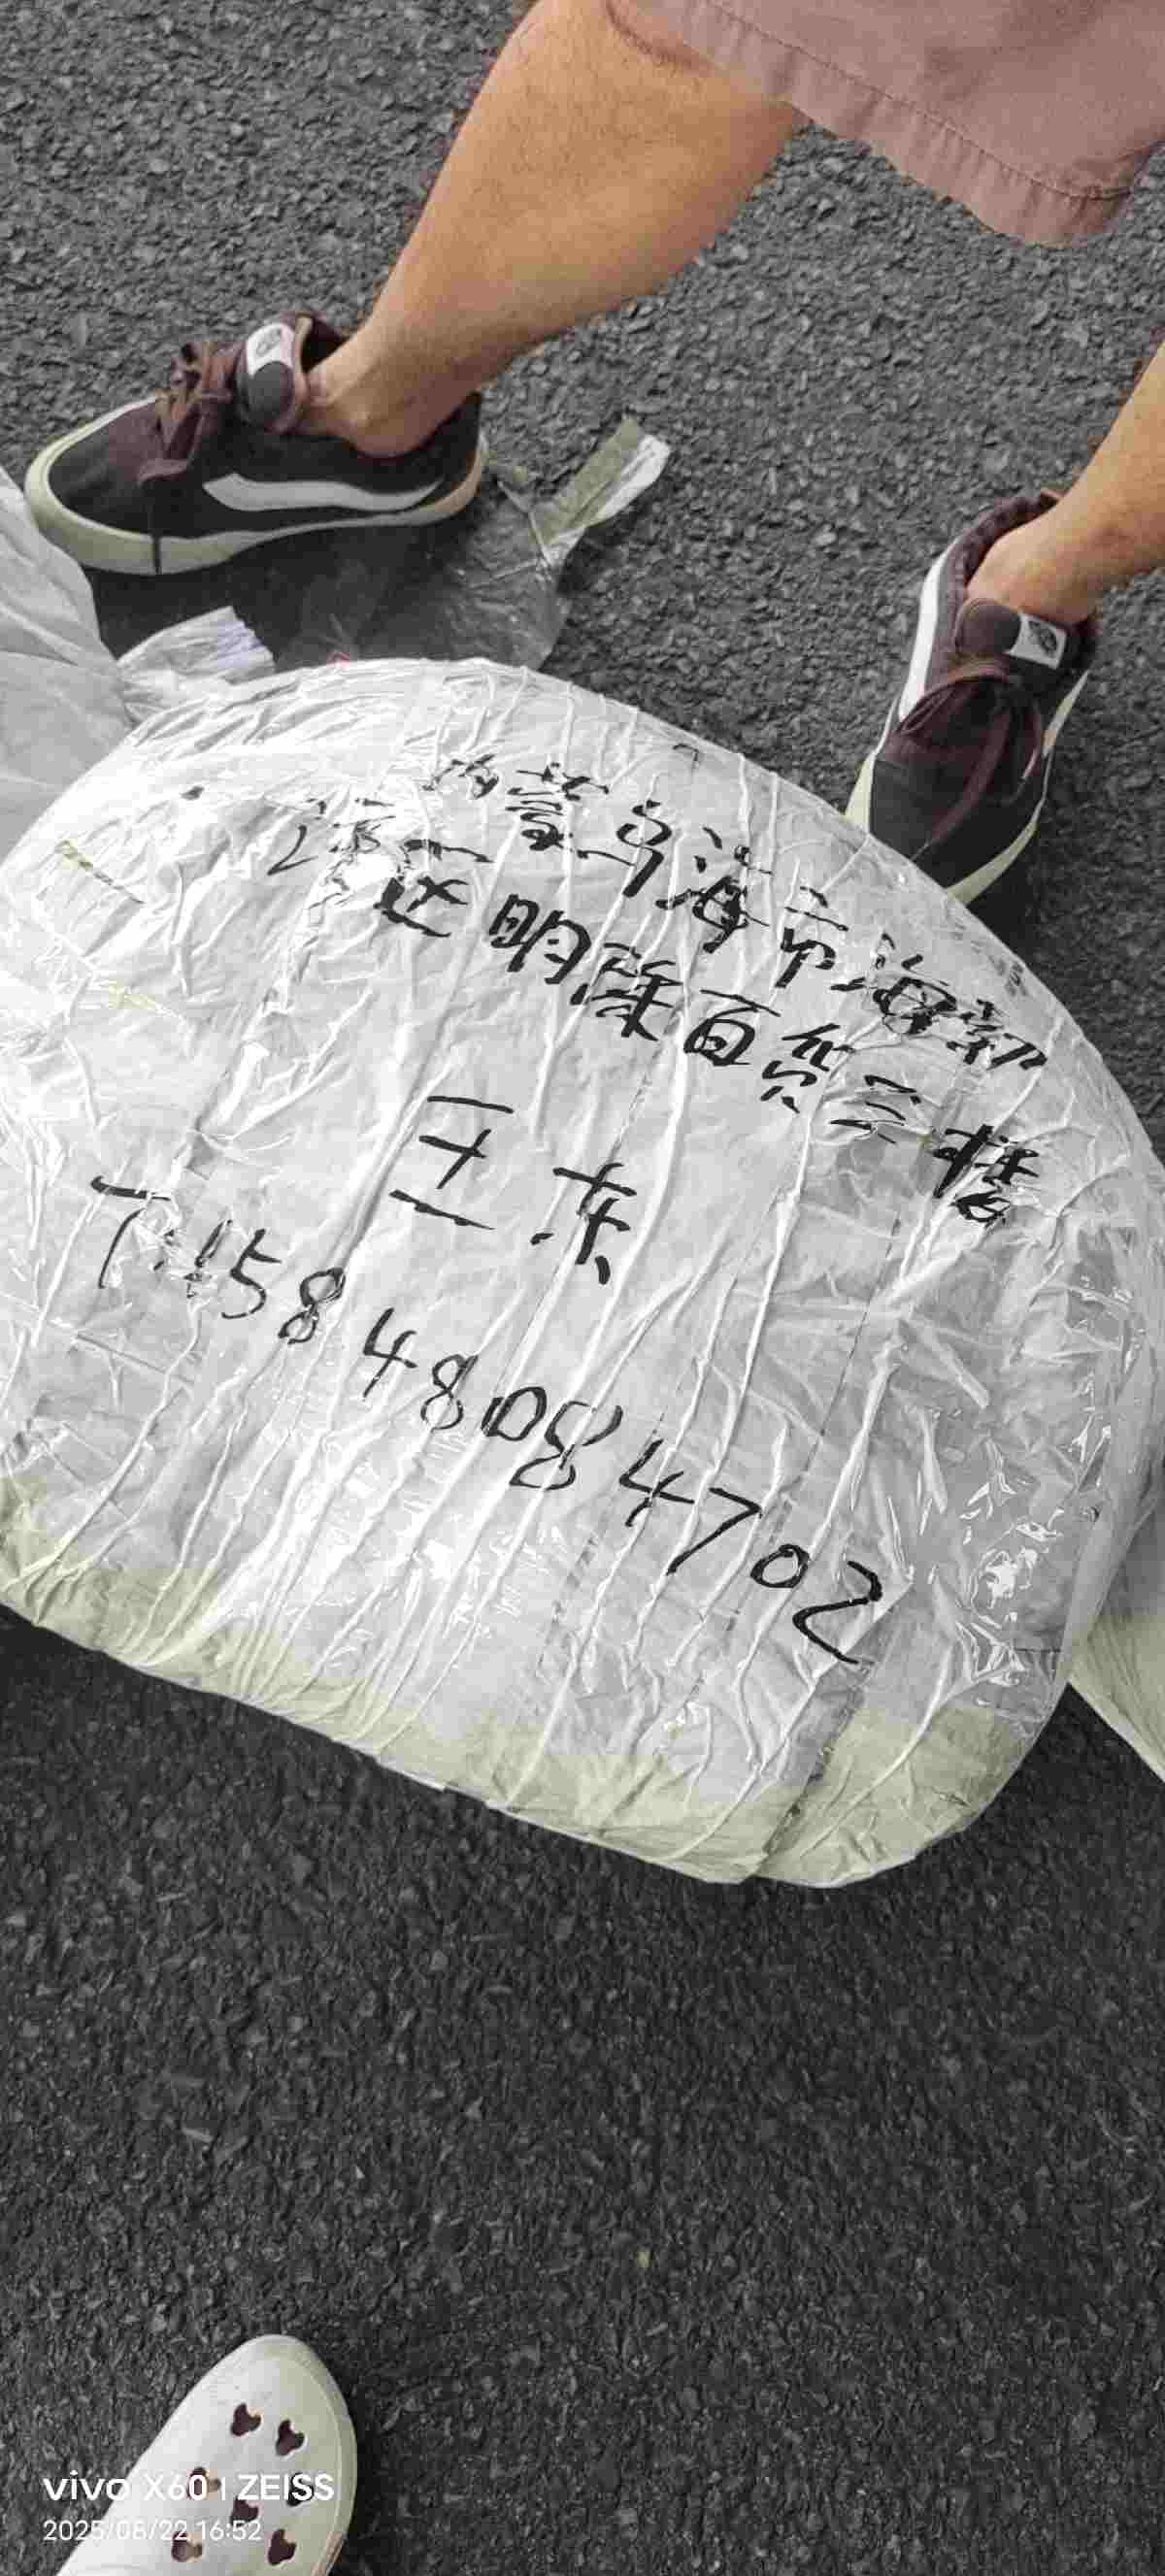 内蒙乌海市海勃
湾区达明隆百货三楼
王东
T:15848084702
vivo X60 | ZEISS
2025/08/22 16:52